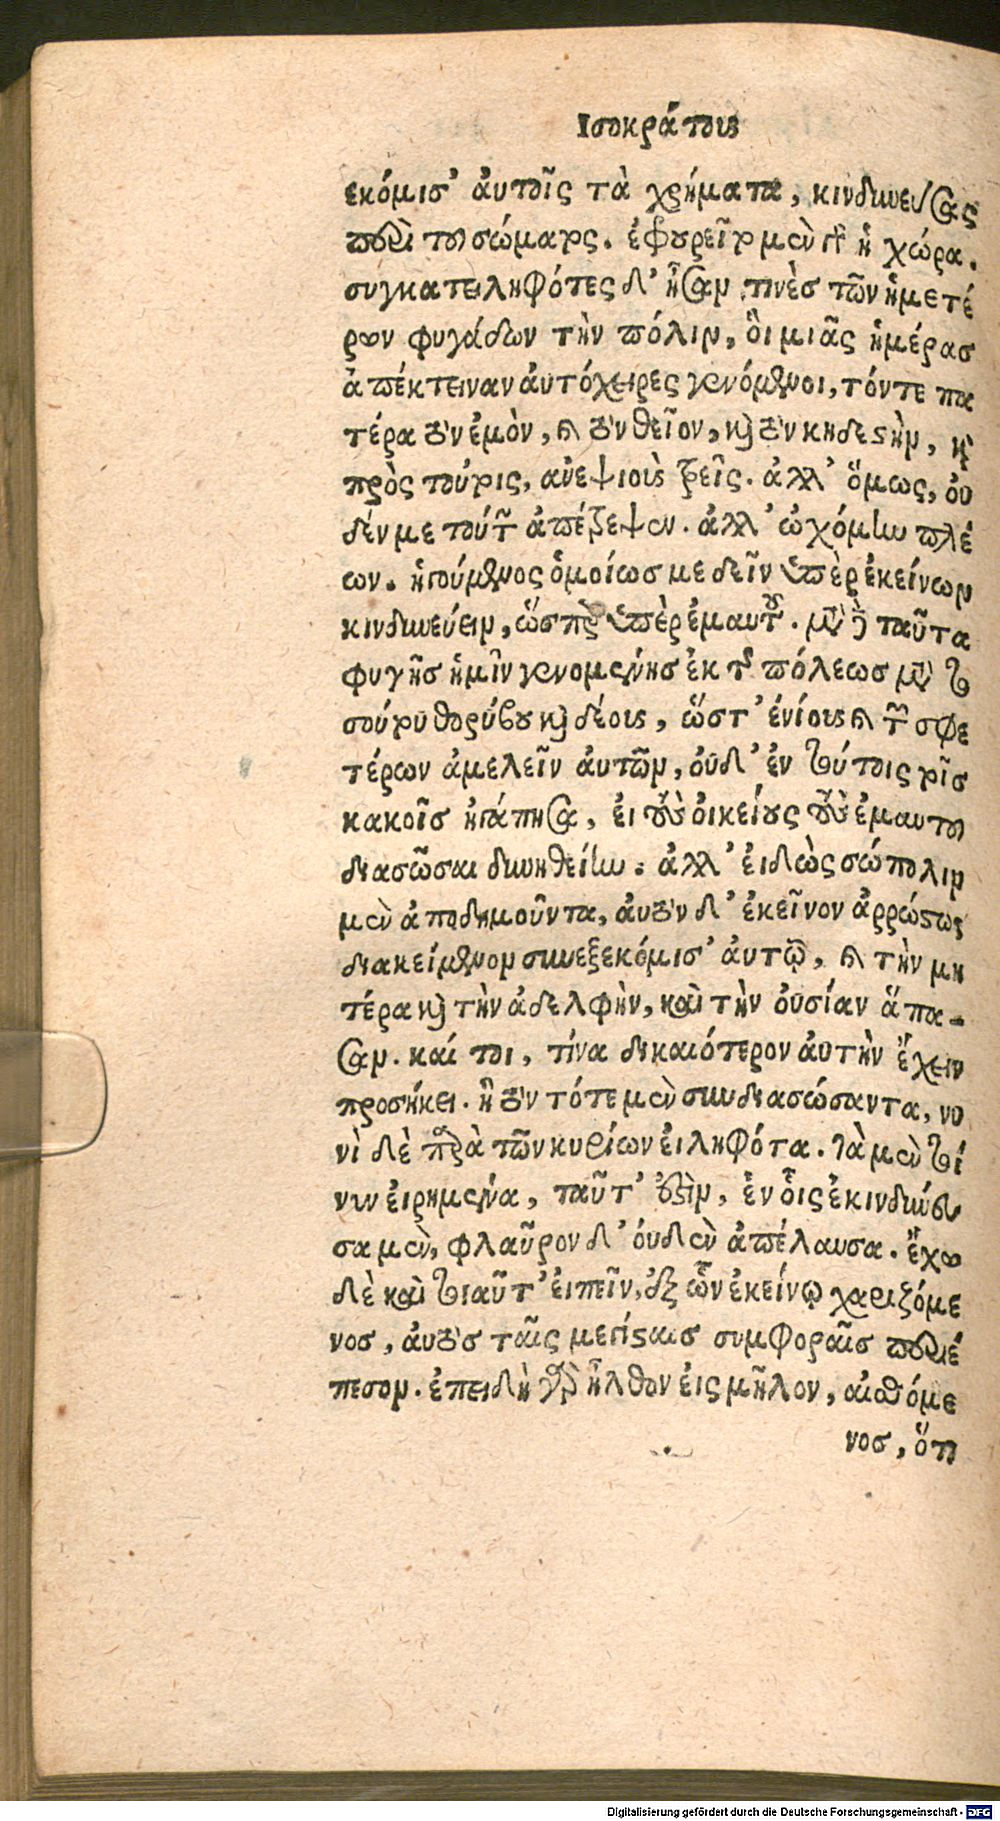 Ισοκράτους
εκόμισ' ἀυτοῖς τὰ χρήματα, κινδυνεύσας
περὶ του σώματος. ἐφρουρεῖτο μὲν γὰρ ἡ χώρα.
συγκατειληφότες δ' ἦσαν τινὲσ τῶν ἡμετέ
ρων φυγάδων τὴν πόλιν, ὃι μιᾶς ἡμέρασ
ἀπέκτειναν ἀυτόχειρες γενόμενοι, τόν τε πα
τέρα τὸν ἐμὸν, καὶ τὸν θεῖον, καὶ τὸν κηδεστὴν, καὶ
πρὸς τούτοις, ἀνεψιοὺς τρεῖς. ἀλλ' ὅμως, ὀυ
δέν με τούτων ἀπέτρεψεν. ἀλλ' ὠχόμην πλέ
ων. ἡγούμενος ὁμοίωσ με δεῖν ὑπὲρ ἐκείνων
κινδυνεύειν, ὥσπερ ὑπὲρ ἐμαυτοῦ. μετὰ δὲ ταῦτα
φυγῆσ ἡμῖν γενομένησ ἐκ τῆς πόλεωσ μετὰ το
σούτου θορύβου καὶ δέους, ὥστ' ἐνίους καὶ τῶν σφε
τέρων ἀμελεῖν ἀυτῶν, ὀυδ' ἐν τούτοις τοῖσ
κακοῖσ ἠγάπησα, ει τοὺς ὀικείους τοὺς ἐμαυτου
διασῶσαι δυνηθείην. ἀλλ' ἐιδὼς σώπολιν
μὲν ἀποδημοῦντα, ἀυτὸν δ' ἐκεῖνον ἀρρώστως
διακείμενον συνεξεκόμισ' ἀυτῷ, καὶ τὴν μη
τέρα καὶ τὴν ἀδελφὴν, καὶ τὴν ὀυσίαν ἅπα-
σαν. καί τοι, τίνα δικαιότερον ἀυτὴν ἔχειν
προσήκει. ἢ τὸν τότε μὲν συνδιασώσαντα, νυ
νὶ δὲ παρὰ τῶν κυρίων ἐιληφότα. Τὰ μὲν τοί
νυν ἐιρημένα, ταῦτ' ἐστὶν, ἐν ὃις ἐκινδύνευ
σα μὲν, φλαῦρον δ' ὀυδὲν ἀπέλαυσα. ἔχω
δὲ καὶ τοιαῦτ' ἐιπεῖν, ἐξ ὧν ἐκείνῳ χαριζόμε
νοσ, ἀυτὸσ ταῖς μεγίσταισ συμφοραῖσ περιέ
πεσον. ἐπειδὴ γὰρ ἤλθον ἐις μῆλον, αἰσθόμε
νοσ, ὅτι
Digitalisierung gefördert durch die Deutsche Forschungsgemeinschaft - DFG